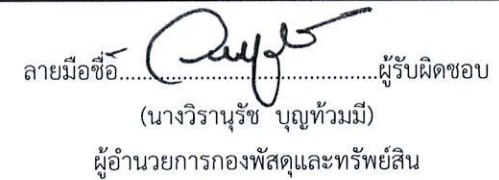 ลายมือชื่อ................................................ผู้รับผิดชอบ
(นางวิรานุรัช บุญท้วมมี)
ผู้อำนวยการกองพัสดุและทรัพย์สิน